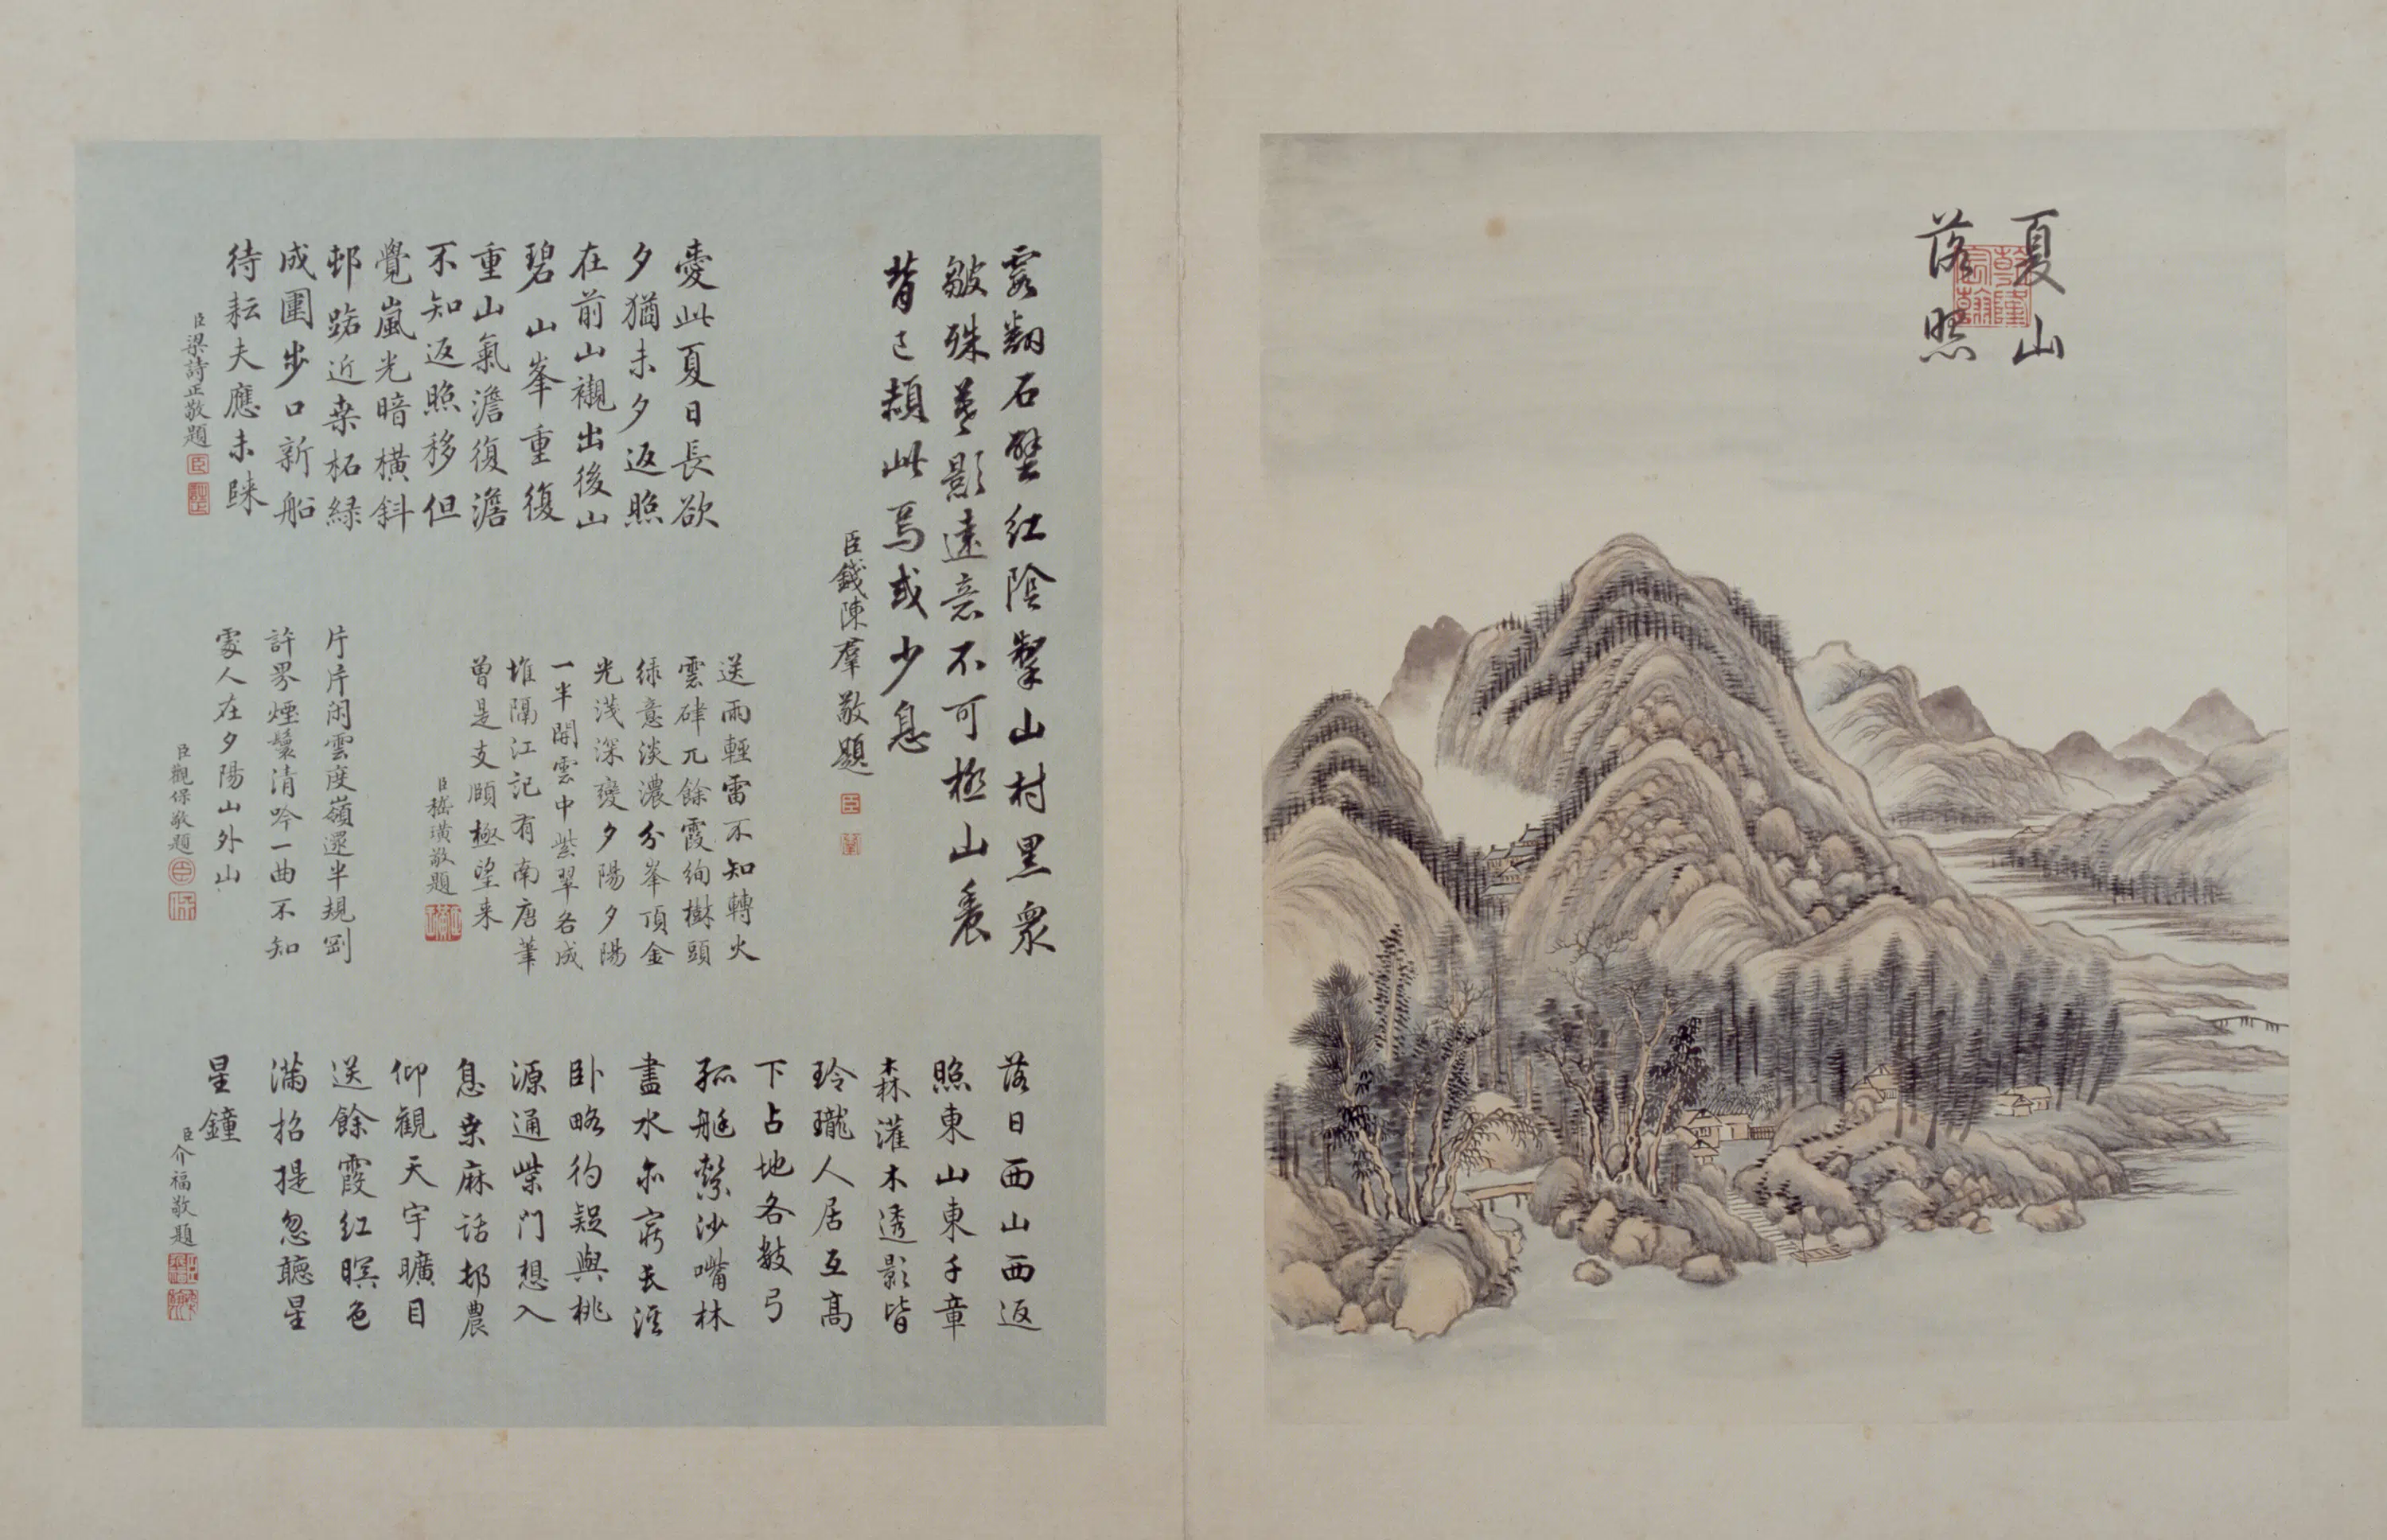 夏山
落照
乾隆
宸翰
霞翻石壁紅陰掣山村黑眾
皺殊影遠意不可極山農
背已頳此焉或少息
臣錢陳羣敬題
愛此夏日長欲
夕猶未夕返照
在前山襯出後山
碧山峯重復
重山氣澹復澹
不知返照移但
覺嵐光暗橫斜
邨路近桑柘綠
成圍步口新船
待耘夫應未歸
臣梁詩正敬題
送雨輕雷不知轉火
雲硉兀餘霞絢樹頭
綠意淡濃分峯頂金
光淺深變夕陽夕陽
一半開雲中紫翠各成
堆隔江記有南唐筆
曾是支頤極望来
臣嵇璜敬題
片片閑雲度嶺還半規剛
許界煙鬟清吟一曲不知
處人在夕陽山外山
臣觀保敬題
落日西山西返
照東山東千章
森灌木透影皆
玲瓏人居互高
下占地各數弓
孤艇繫沙嘴林
盡水亦窮長
卧略彴疑與桃
源通柴門想入
息桑麻話邨農
仰觀天宇曠目
送餘霞紅暝色
滿招提忽聽星
星鐘
臣介福敬題